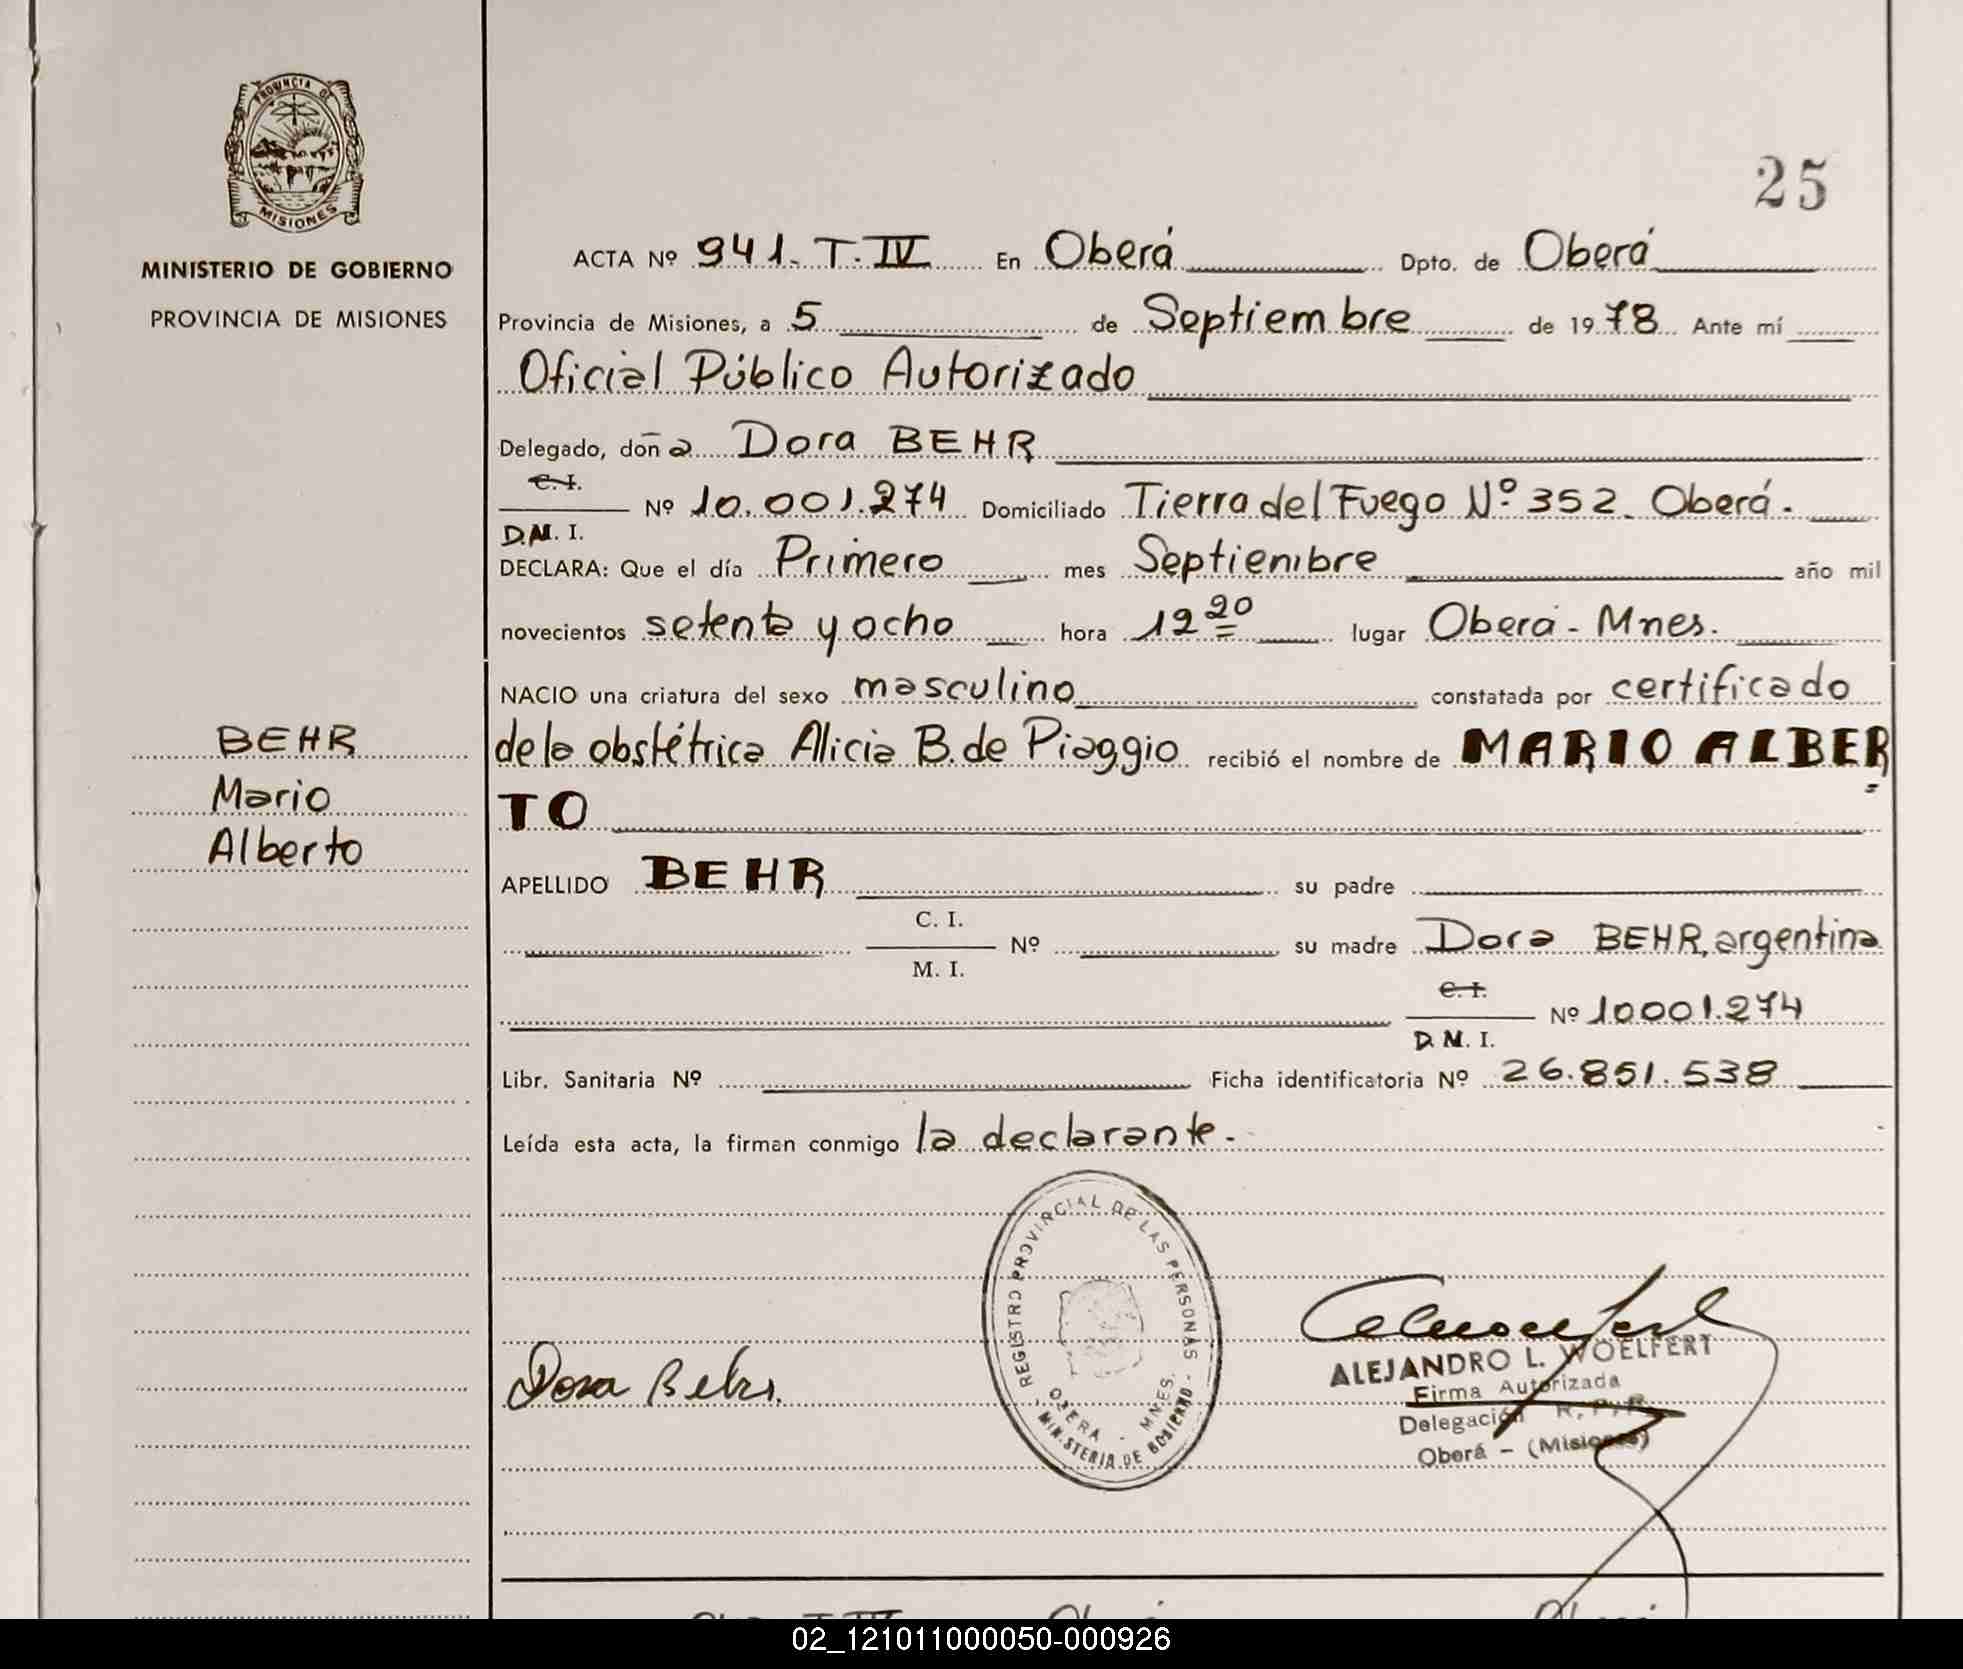 PROVINCIA DE
MISIONES
MINISTERIO DE GOBIERNO
PROVINCIA DE MISIONES
25
ACTA Nº 941. T. IV En Oberá Dpto. de Oberá
Provincia de Misiones, a 5 de Septiembre de 1978 Ante mí
Oficial Público Autorizado
Delegado, doña Dora BEHR
C. I.
Nº 10.001.274 Domiciliado Tierra del Fuego Nº 352. Oberá.
D.M. I.
DECLARA: Que el día Primero mes Septiembre año mil
novecientos setenta y ocho hora 12 20 lugar Oberá - Mnes.
NACIO una criatura del sexo masculino constatada por certificado
de la obstétrica Alicia B. de Piaggio recibió el nombre de MARIO ALBER=
TO
BEHR
Mario
Alberto
APELLIDO BEHR su padre
C. I.
Nº su madre Dora BEHR, argentina
M. I.
C. I.
Nº 10001.274
D. M. I.
Libr. Sanitaria Nº Ficha identificatoria Nº 26.851.538
Leída esta acta, la firman conmigo la declarante.
REGISTRO PROVINCIAL DE LAS PERSONAS
OBERA - MNES.
MINISTERIO DE GOBIERNO
Dora Behr.
ALEJANDRO L. WOELFERT
Firma Autorizada
Delegación R. P. P.
Oberá - (Misiones)
02_121011000050-000926